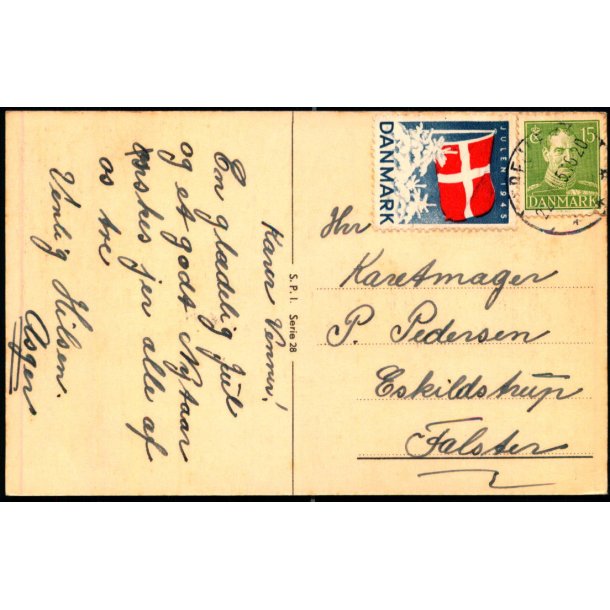 Kære Venner!
En glædelig Jul
og et godt Nytaar
ønskes jer alle af
os tre
Venlig Hilsen.
Asger
S. P. I. Serie 28
DANMARK
JULEN 1945
15
DANMARK
Hr.
Karetmager
P. Pedersen
Eskildstrup
Falster